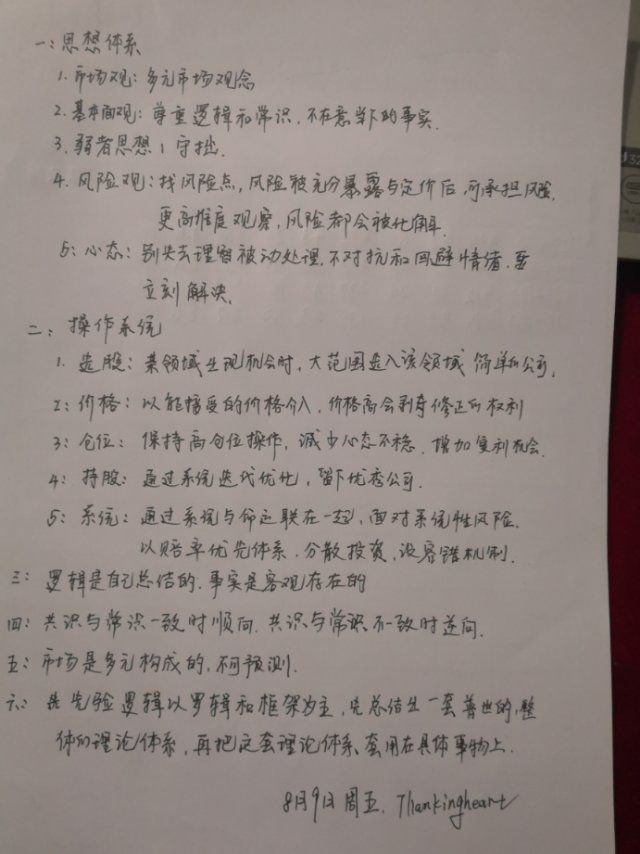 一:思想体系
1.市场观:多元市场观念
2.基本面观:尊重逻辑和常识,不在意当下的事实.
3.弱者思想:守拙.
4.风险观:找风险点,风险被充分暴露与定价后,可承担风险.
更高维度观察,风险都会被化解.
5:心态:别失去理智被动处理,不对抗和回避情绪.要
立刻解决.
二、操作系统
1.选股:某领域出现机会时,大范围选入该领域 简单的公司.
2:价格:以能接受的价格介入,价格高会剥夺修正的权利
3:仓位:保持高仓位操作,减少心态不稳.增加复利机会.
4:持股:通过系统迭代优化,留下优秀公司.
5:系统:通过系统与命运联在一起,面对系统性风险.
以赔率优先体系,分散投资,设容错机制.
三:逻辑是自己总结的.事实是客观存在的
四:共识与常识一致时顺向.共识与常识不一致时逆向.
五:市场是多元构成的,不可预测.
六:先验逻辑以逻辑和框架为主,先总结出一套普世的,整
体的理论体系,再把这套理论体系套用在具体事物上.
8月9日周五. Thankingheart